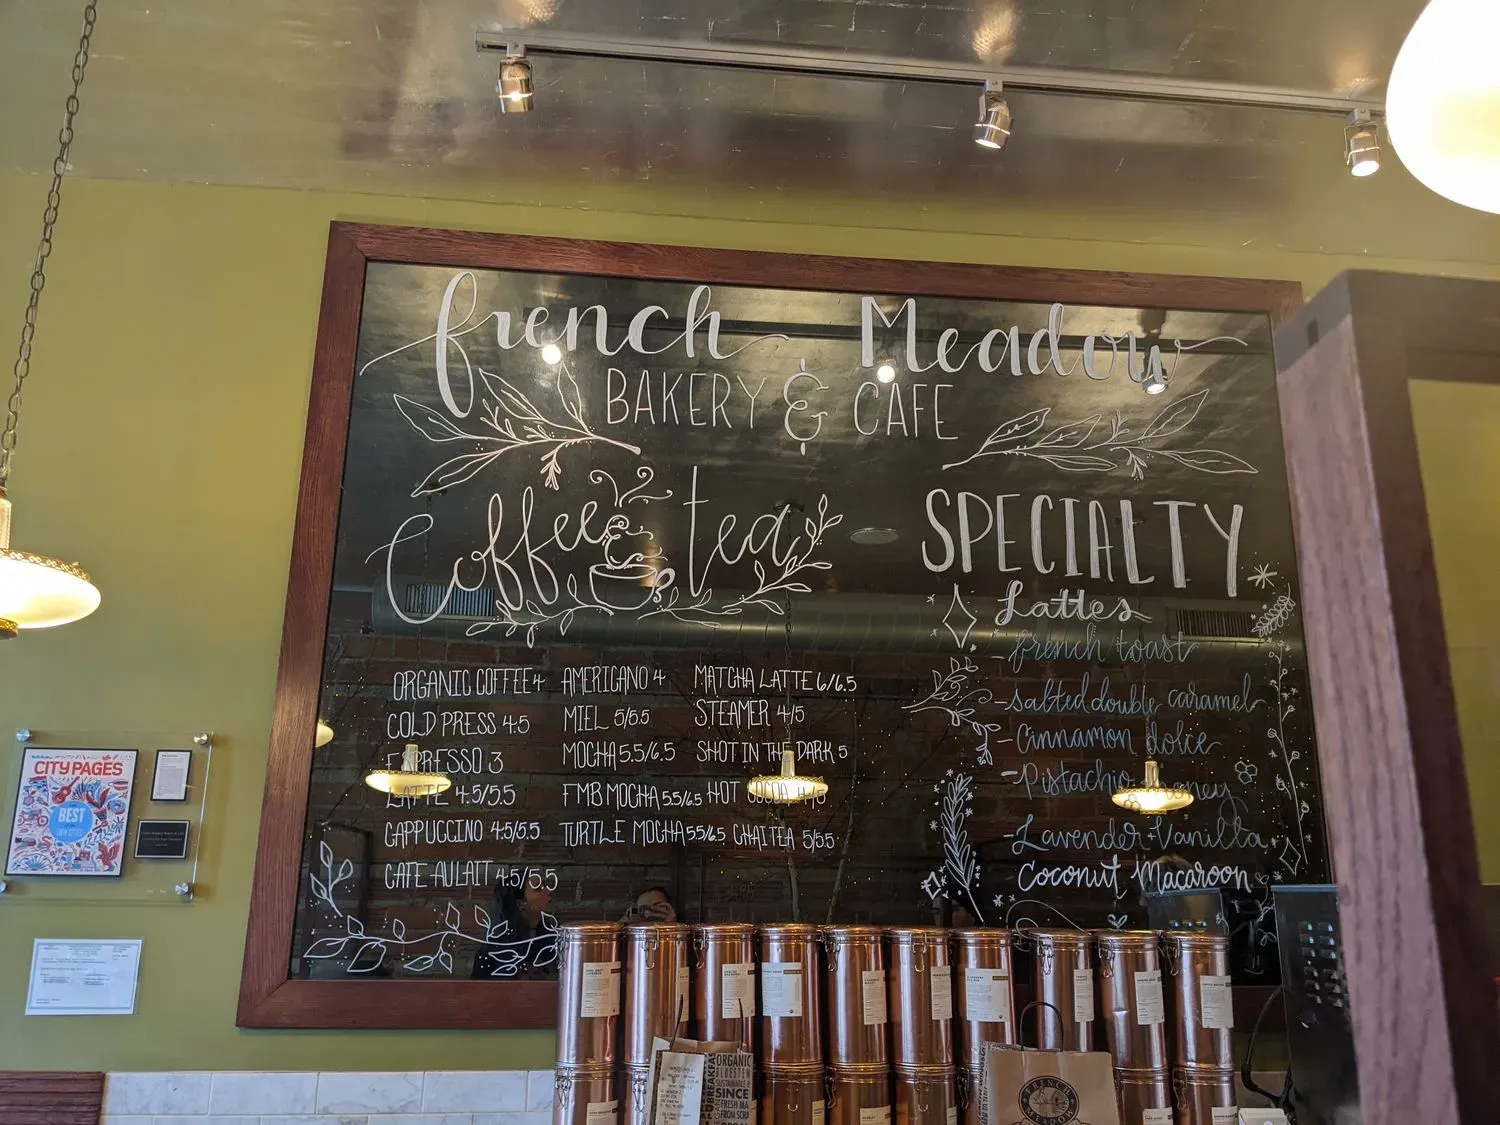 french Meadow
BAKERY & CAFE
Coffee tea
ORGANIC COFFEE 4
COLD PRESS 4.5
ESPRESSO 3
LATTE 4.5/5.5
CAPPUCCINO 4.5/5.5
CAFE AU LAIT 4.5/5.5
AMERICANO 4
MIEL 5/5.5
MOCHA 5.5/6.5
FMB MOCHA 5.5/6.5
TURTLE MOCHA 5.5/6.5
MATCHA LATTE 6/6.5
STEAMER 4/5
SHOT IN THE DARK 5
HOT COCOA 4/5
CHAI TEA 5/5.5
SPECIALTY
Lattes
french toast
-salted double caramel
-Cinnamon dolce
-Pistachio honey
-Lavender+Vanilla
Coconut Macaroon
CITY PAGES
BEST
ORGANIC
SINCE
FRESH
FRENCH
MEADOW